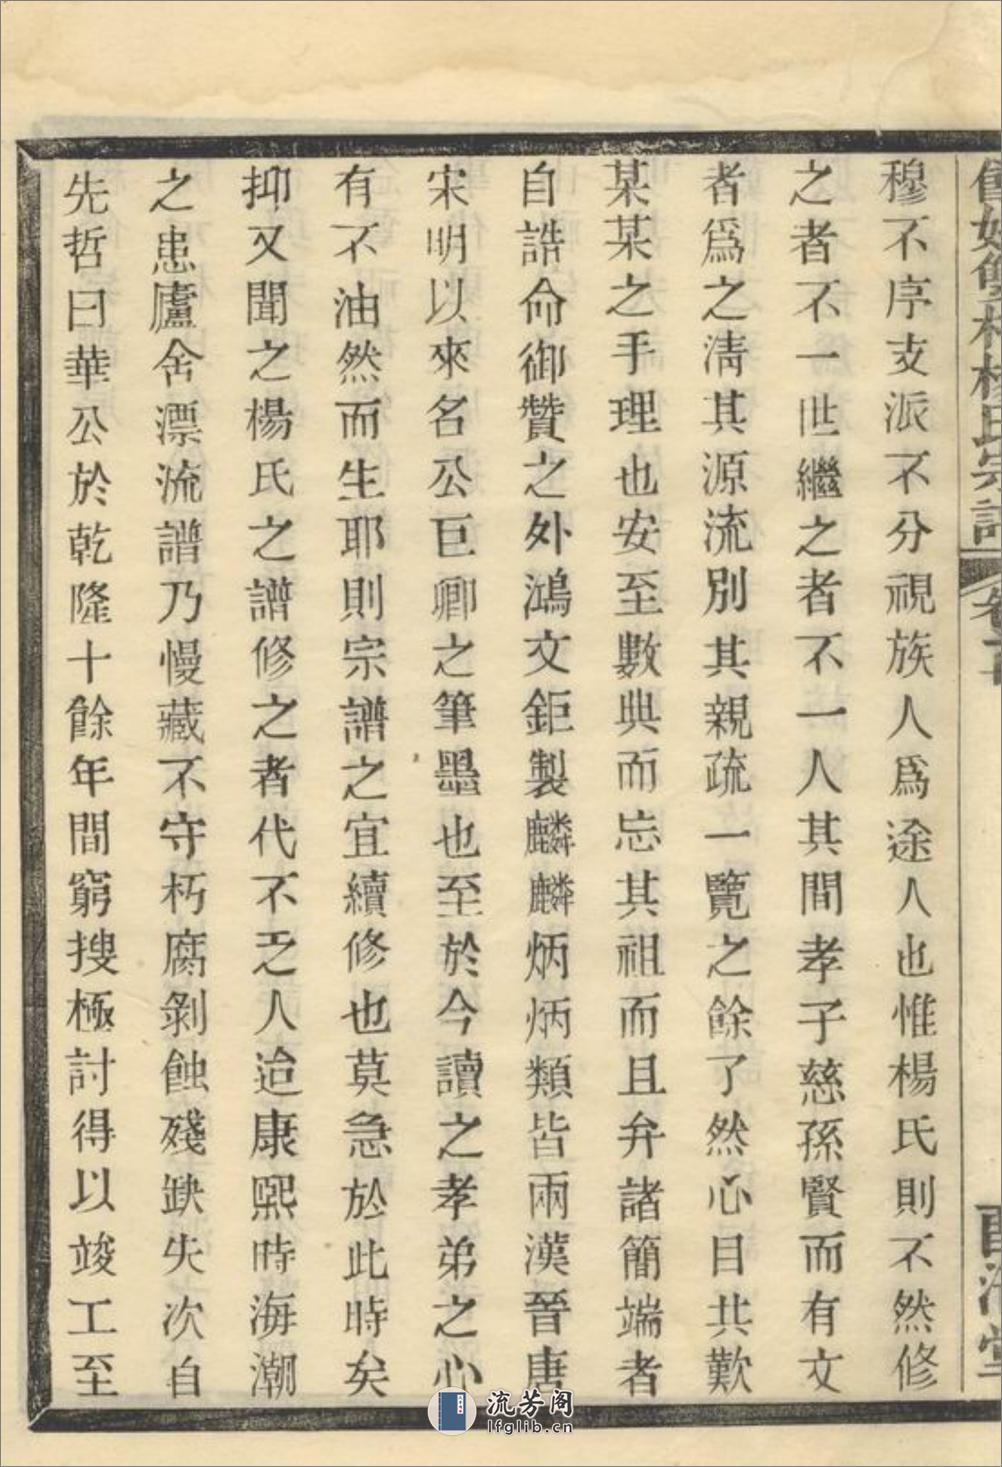 穆不序支派不分視族人爲途人也惟楊氏則不然修
之者不一世繼之者不一人其間孝子慈孫賢而有文
者爲之清其源流別其親疏一覽之餘了然心目共歎
某某之手理也安至數典而忘其祖而且弁諸簡端者
自誥命御贊之外鴻文鉅製麟麟炳炳類皆兩漢晉唐
宋明以來名公巨卿之筆墨也至於今讀之孝弟之心
有不油然而生耶則宗譜之宜續修也莫急於此時矣
抑又聞之楊氏之譜修之者代不乏人迨康熙時海潮
之患廬舍漂流譜乃慢藏不守朽腐剝蝕殘缺失次自
先哲曰華公於乾隆十餘年間窮搜極討得以竣工至
楊氏宗譜
流芳阁
lfglib.cn